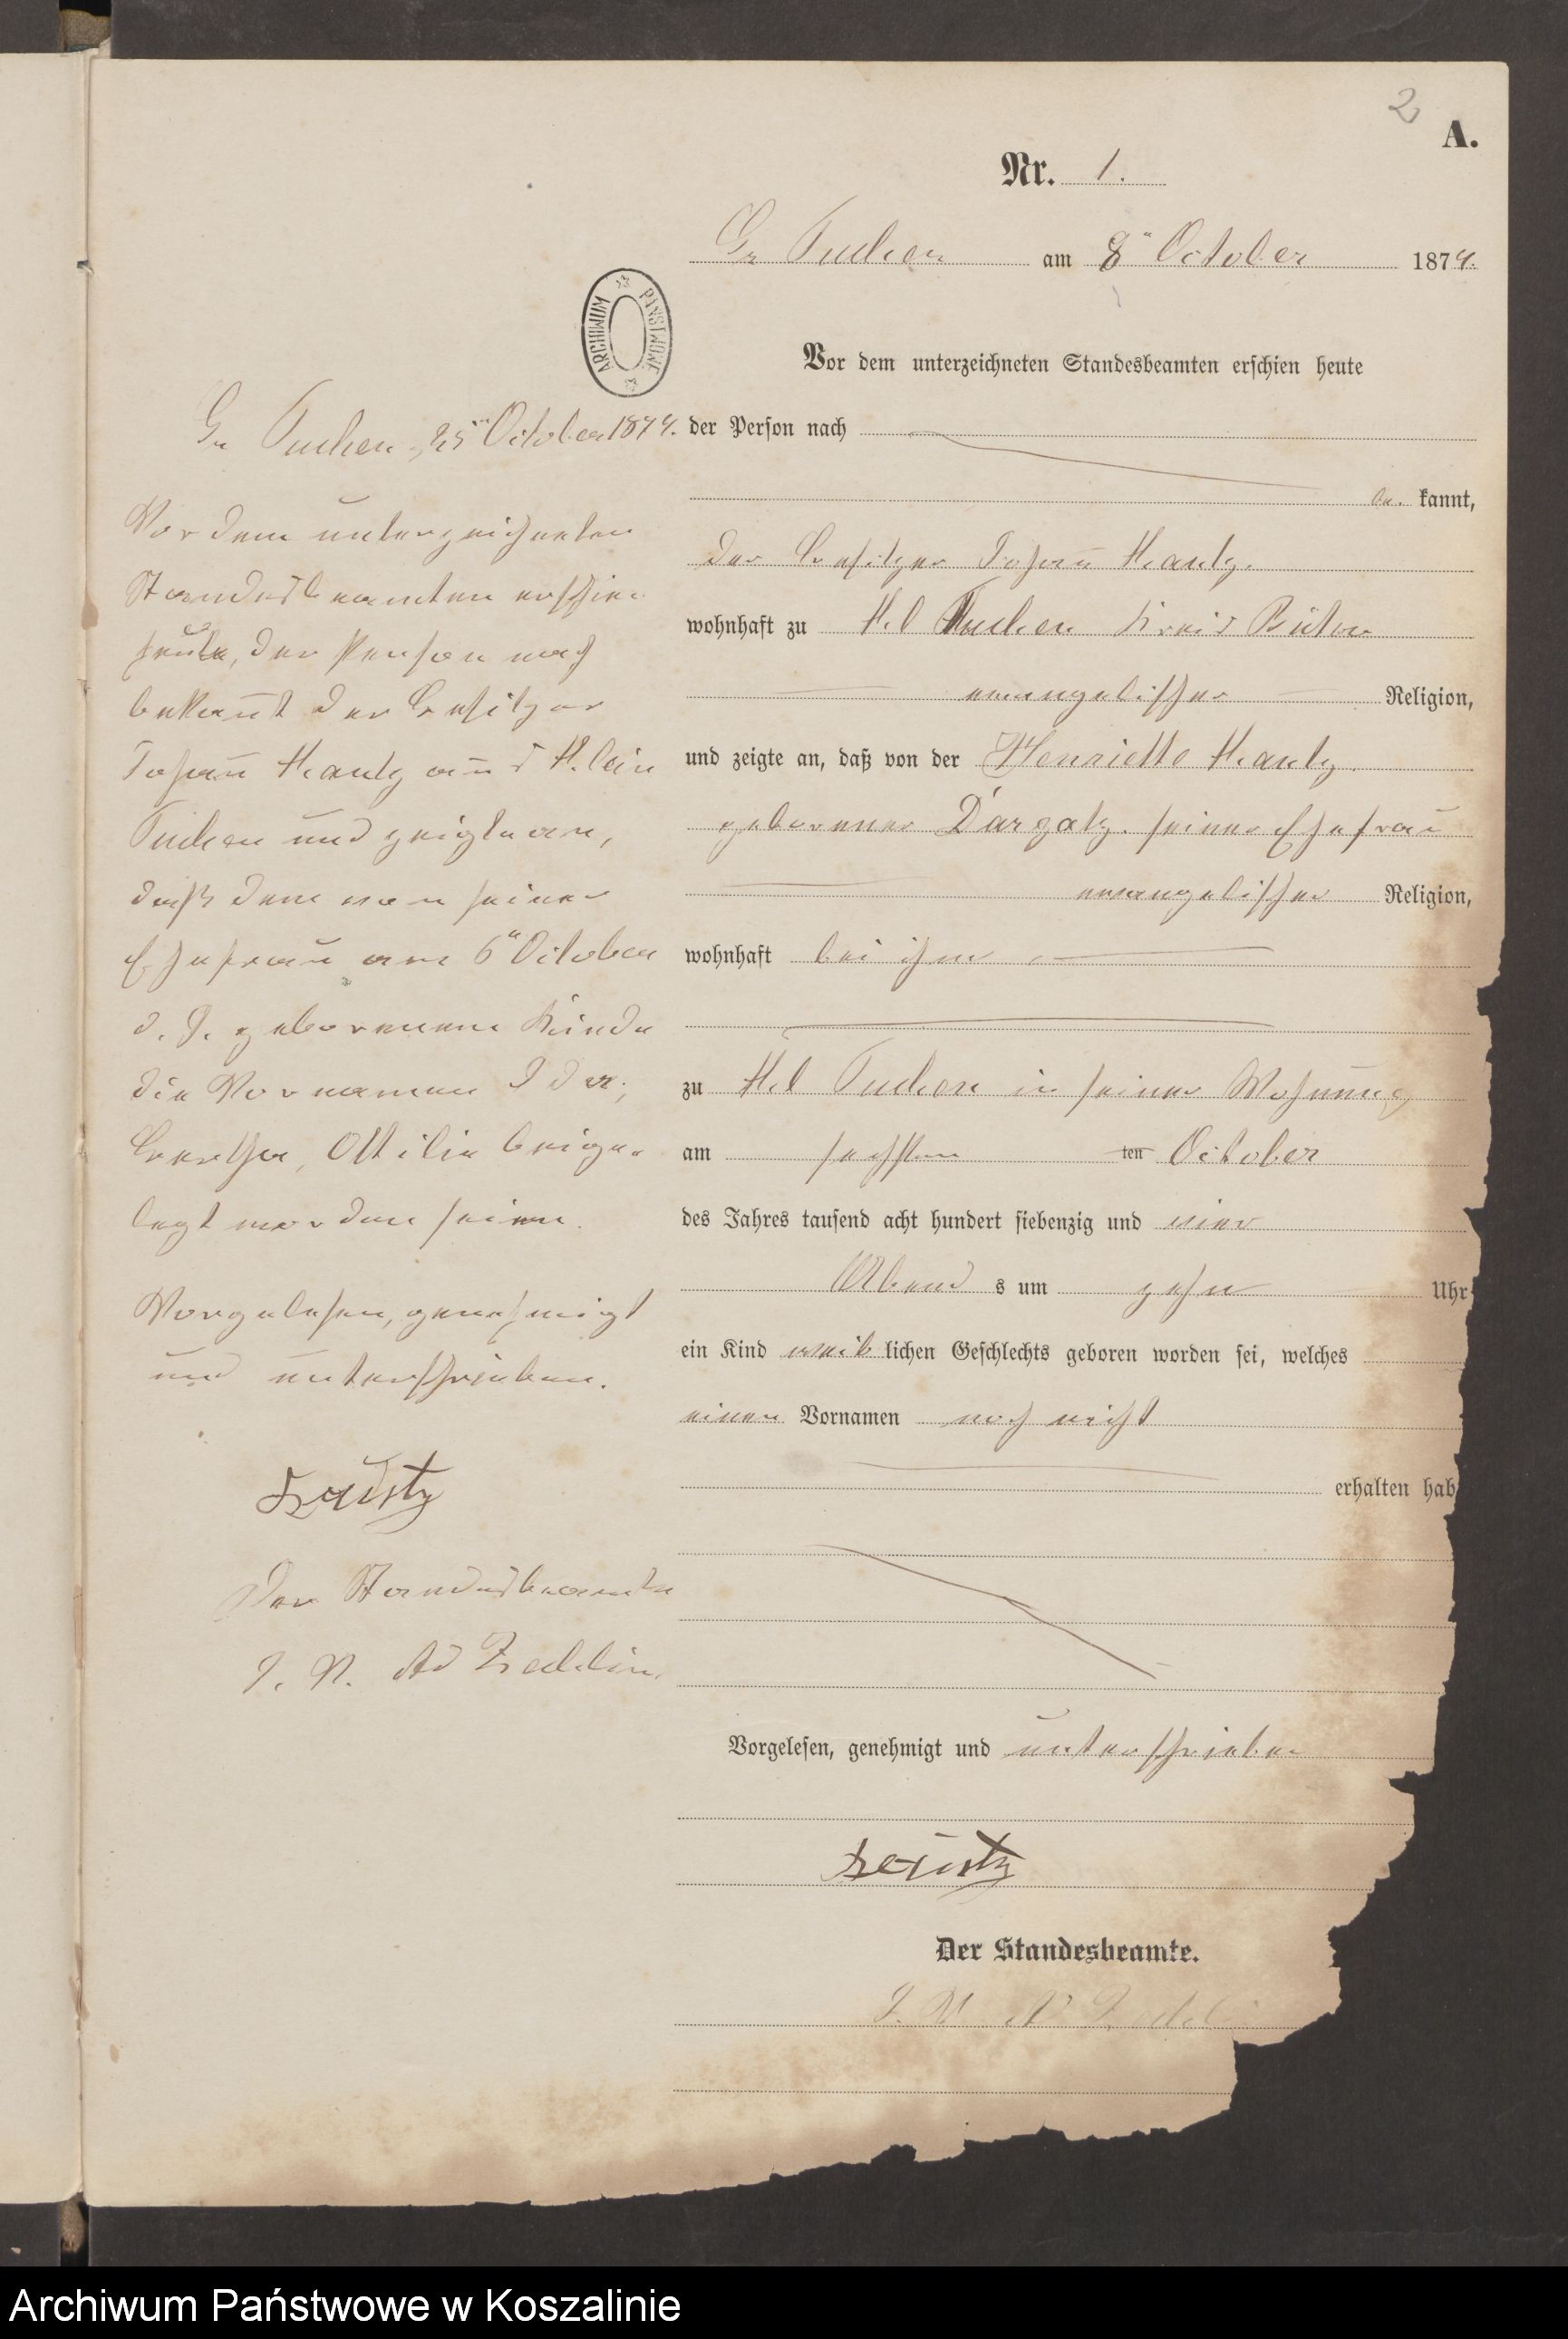 2
A.
Nr. 1.
Gr Tuchen am 8ten October 1874.
ARCHIWUM PAŃSTWOWE
Vor dem unterzeichneten Standesbeamten erschien heute
der Person nach
be kannt,
der Besitzer Johann
wohnhaft zu Kl Tuchen Kreis Bütow
evangelischer Religion,
und zeigte an, daß von der Henriette
geborener Dargatz seiner Ehefrau
evangelischer Religion,
wohnhaft bei ihm
zu Kl Tuchen in seiner Wohnung
am sechsten ten October
des Jahres tausend acht hundert siebenzig und vier
Abend s um zehn Uhr
ein Kind weib lichen Geschlechts geboren worden sei, welches
einen Vornamen noch nicht
erhalten hab
Vorgelesen, genehmigt und unterschrieben
Der Standesbeamte.
Gr Tuchen, 25ten October 1874.
Vor dem unterzeichneten
Standesbeamten erschien
heute, der Person nach
bekannt der Besitzer
Johann aus Klein
Tuchen und zeigte an,
daß dem von seiner
Ehefrau am 6ten October
d. J. geborenem Kinde
die Vornamen Ida,
Bertha, Ottilie beige-
legt worden seien.
Vorgelesen, genehmigt
und unterschrieben.
Der Standesbeamte
J. V.
Archiwum Państwowe w Koszalinie